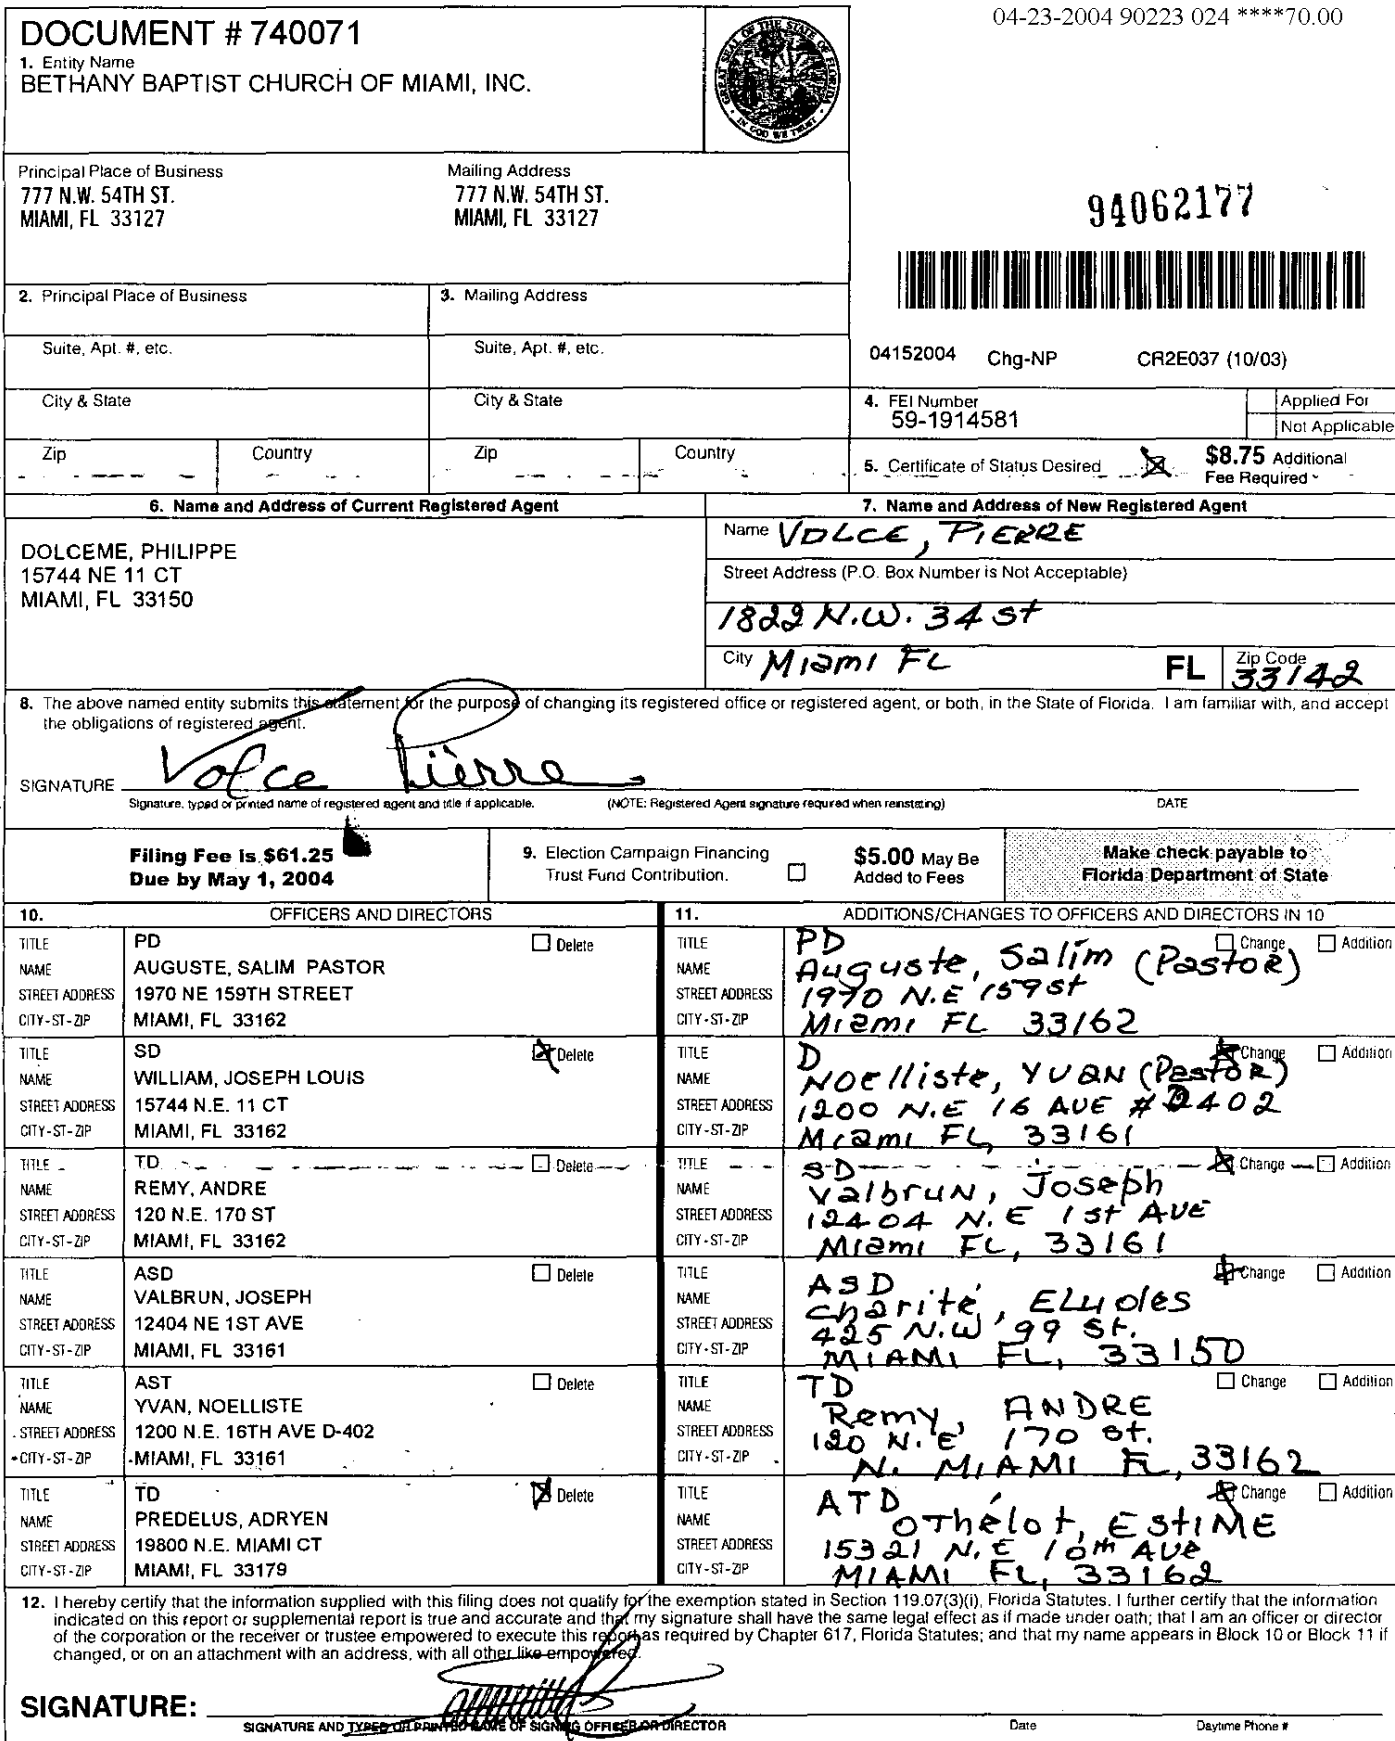 04-23-2004 90223 024 ****70.00
DOCUMENT # 740071
1. Entity Name
BETHANY BAPTIST CHURCH OF MIAMI, INC.
GREAT SEAL OF THE STATE OF FLORIDA
IN GOD WE TRUST
Principal Place of Business
777 N.W. 54TH ST.
MIAMI, FL 33127
Mailing Address
777 N.W. 54TH ST.
MIAMI, FL 33127
94062177
2. Principal Place of Business
3. Mailing Address
Suite, Apt. #, etc.
Suite, Apt. #, etc.
04152004 Chg-NP CR2E037 (10/03)
City & State
City & State
4. FEI Number
59-1914581
Applied For
Not Applicable
Zip
Country
Zip
Country
5. Certificate of Status Desired
$8.75 Additional
Fee Required
6. Name and Address of Current Registered Agent
DOLCEME, PHILIPPE
15744 NE 11 CT
MIAMI, FL 33150
7. Name and Address of New Registered Agent
Name VOLCE, PIERRE
Street Address (P.O. Box Number is Not Acceptable)
1822 N.W. 34 St
City Miami FL FL Zip Code
33142
8. The above named entity submits this statement for the purpose of changing its registered office or registered agent, or both, in the State of Florida. I am familiar with, and accept
the obligations of registered agent.
SIGNATURE Volce Pierre
Signature, typed or printed name of registered agent and title if applicable. (NOTE: Registered Agent signature required when reinstating) DATE
Filing Fee is $61.25
Due by May 1, 2004
9. Election Campaign Financing
Trust Fund Contribution.
$5.00 May Be
Added to Fees
Make check payable to
Florida Department of State
10. OFFICERS AND DIRECTORS
TITLE PD Delete
NAME AUGUSTE, SALIM PASTOR
STREET ADDRESS 1970 NE 159TH STREET
CITY-ST-ZIP MIAMI, FL 33162
TITLE SD Delete
NAME WILLIAM, JOSEPH LOUIS
STREET ADDRESS 15744 N.E. 11 CT
CITY-ST-ZIP MIAMI, FL 33162
TITLE TD Delete
NAME REMY, ANDRE
STREET ADDRESS 120 N.E. 170 ST
CITY-ST-ZIP MIAMI, FL 33162
TITLE ASD Delete
NAME VALBRUN, JOSEPH
STREET ADDRESS 12404 NE 1ST AVE
CITY-ST-ZIP MIAMI, FL 33161
TITLE AST Delete
NAME YVAN, NOELLISTE
STREET ADDRESS 1200 N.E. 16TH AVE D-402
CITY-ST-ZIP MIAMI, FL 33161
TITLE TD Delete
NAME PREDELUS, ADRYEN
STREET ADDRESS 19800 N.E. MIAMI CT
CITY-ST-ZIP MIAMI, FL 33179
11. ADDITIONS/CHANGES TO OFFICERS AND DIRECTORS IN 10
TITLE PD Change Addition
NAME Auguste, Salim (Pastor)
STREET ADDRESS 1970 N.E 159 St
CITY-ST-ZIP Miami FL 33162
TITLE D Change Addition
NAME NOElliste, YVAN (Pastor)
STREET ADDRESS 1200 N.E 16 AVE # D402
CITY-ST-ZIP Miami FL, 33161
TITLE SD Change Addition
NAME Valbrun, Joseph
STREET ADDRESS 12404 N.E 1St AVE
CITY-ST-ZIP Miami FL, 33161
TITLE ASD Change Addition
NAME Charité, Eludes
STREET ADDRESS 425 N.W 99 St.
CITY-ST-ZIP MIAMI FL, 33150
TITLE TD Change Addition
NAME Remy, ANDRE
STREET ADDRESS 120 N.E 170 St.
CITY-ST-ZIP N. MIAMI FL, 33162
TITLE ATD Change Addition
NAME OThélot, EStIME
STREET ADDRESS 15321 N.E 10th AVE
CITY-ST-ZIP MIAMI FL, 33162
12. I hereby certify that the information supplied with this filing does not qualify for the exemption stated in Section 119.07(3)(i), Florida Statutes. I further certify that the information
indicated on this report or supplemental report is true and accurate and that my signature shall have the same legal effect as if made under oath; that I am an officer or director
of the corporation or the receiver or trustee empowered to execute this report as required by Chapter 617, Florida Statutes; and that my name appears in Block 10 or Block 11 if
changed, or on an attachment with an address, with all other like empowered.
SIGNATURE:
SIGNATURE AND TYPED OR PRINTED NAME OF SIGNING OFFICER OR DIRECTOR Date Daytime Phone #